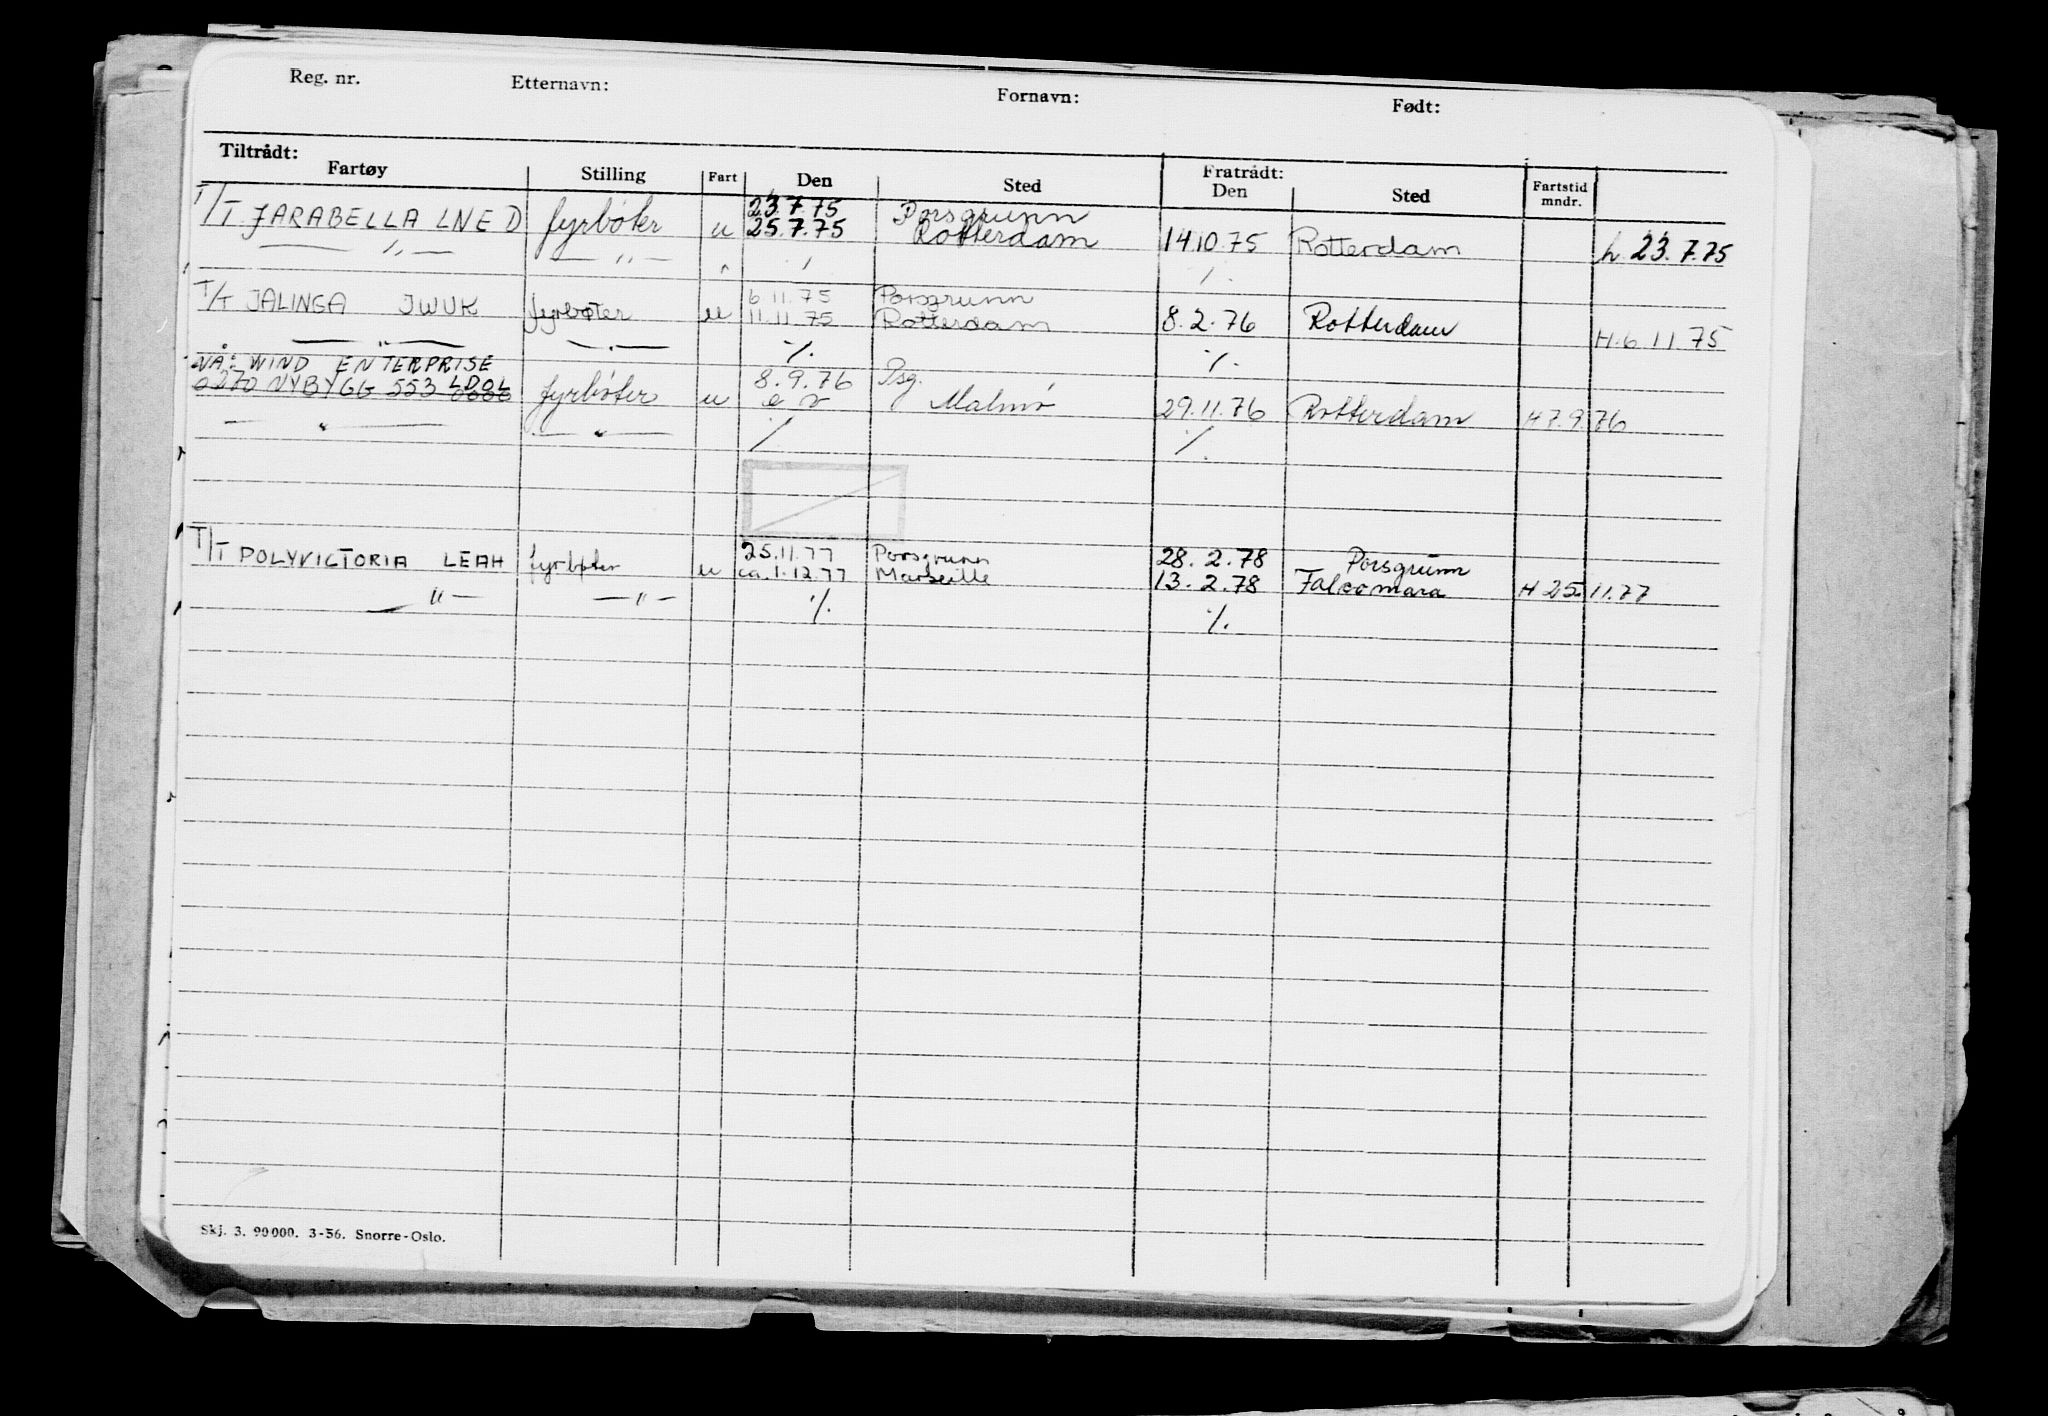 Reg. nr. Etternavn: Fornavn: Født:
Tiltrådt: Fratrådt:
Fartøy Stilling Fart Den Sted Den Sted Fartstid mndr.
23.7.75 Porsgrunn
T/T JARABELLA LNED fyrbøter u 25.7.75 Rotterdam 14.10.75 Rotterdam h. 23.7.75
— " — — " — " ./. ./.
6.11.75 Porsgrunn
T/T JALINGA JWUK fyrbøter u 11.11.75 Rotterdam 8.2.76 Rotterdam H.6 11 75
— " — — " — ./. ./.
NÅ: WIND ENTERPRISE 8.9.76 Psg.
NYBYGG 553 LDOL fyrbøter u Malmø 29.11.76 Rotterdam H 7.9.76
— " — — " — ./. ./.
25.11.77 Porsgrunn 28.2.78 Porsgrunn
T/T POLYVICTORIA LEAH fyrbøter u ca.1.12.77 Marseille 13.2.78 Falcomara H 25.11.77
— " — — " — ./. ./.
Skj. 3. 90000. 3-56. Snorre-Oslo.